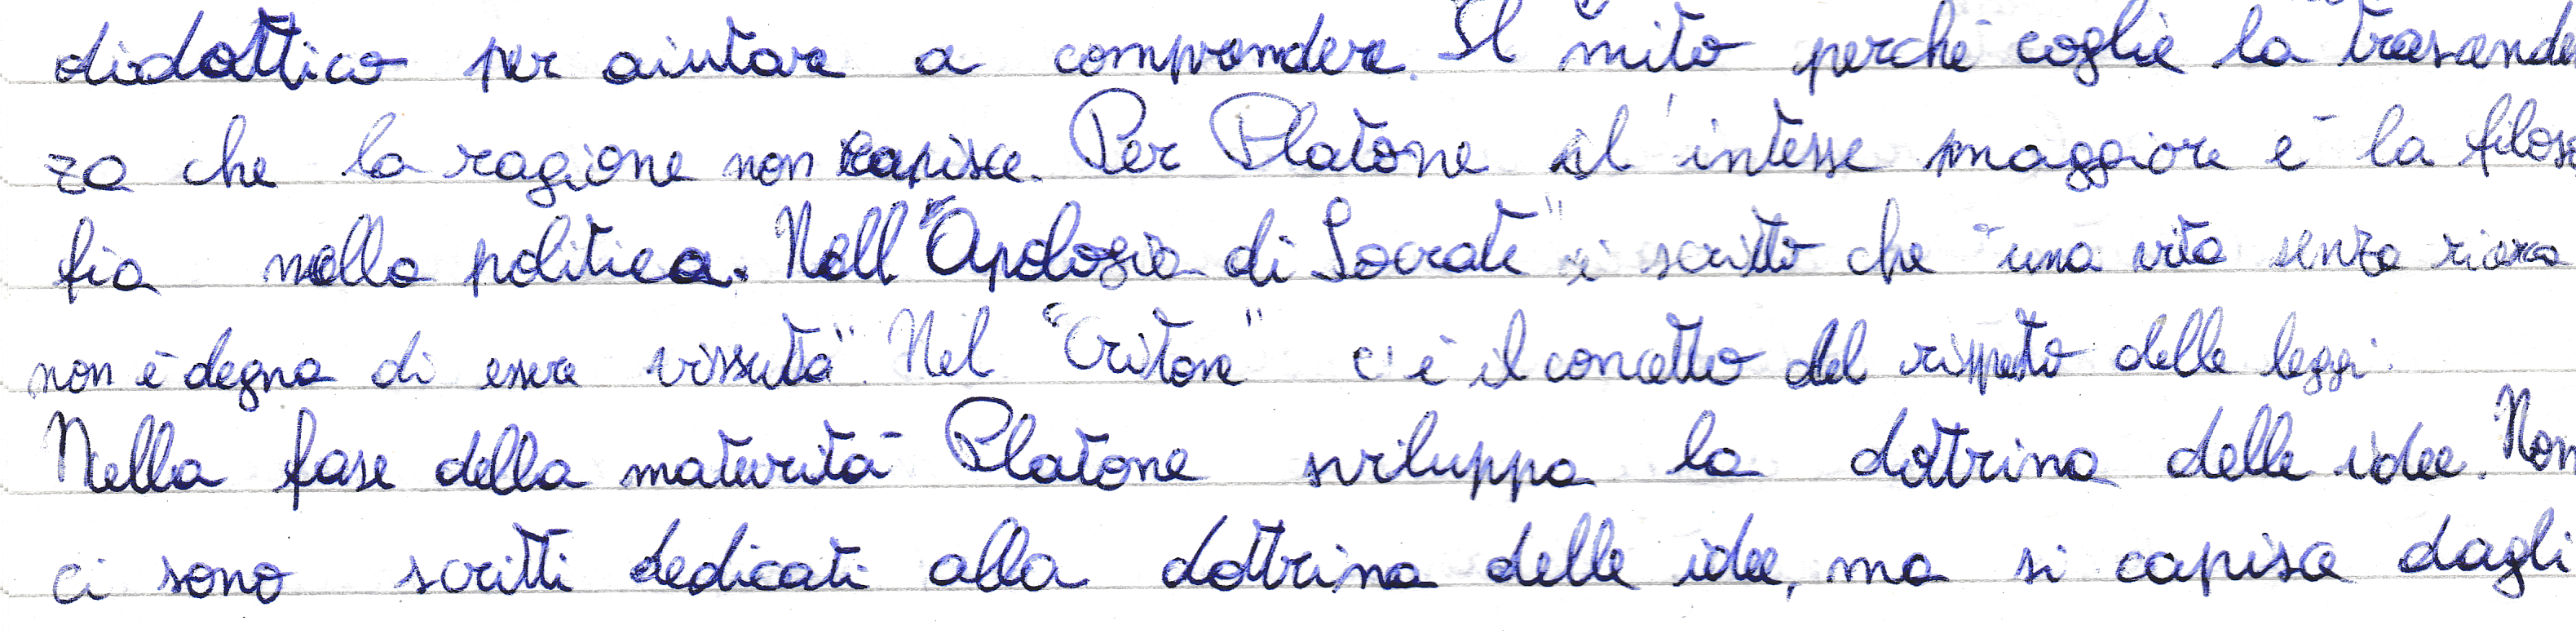 didattico per aiutare a comprendere. Il mito perché coglie la trascenden
za che la ragione non capisce. Per Platone il intesse maggiore è la filoso
fia nella politica. Nell'"Apologia di Socrate" è scritto che "una vita senza ricerca
non è degna di essere vissuta". Nel "Critone" c'è il concetto del rispetto delle leggi.
Nella fase della maturità Platone sviluppa la dottrina delle idee. Non
ci sono scritti dedicati alla dottrina delle idee, ma si capisce dagli